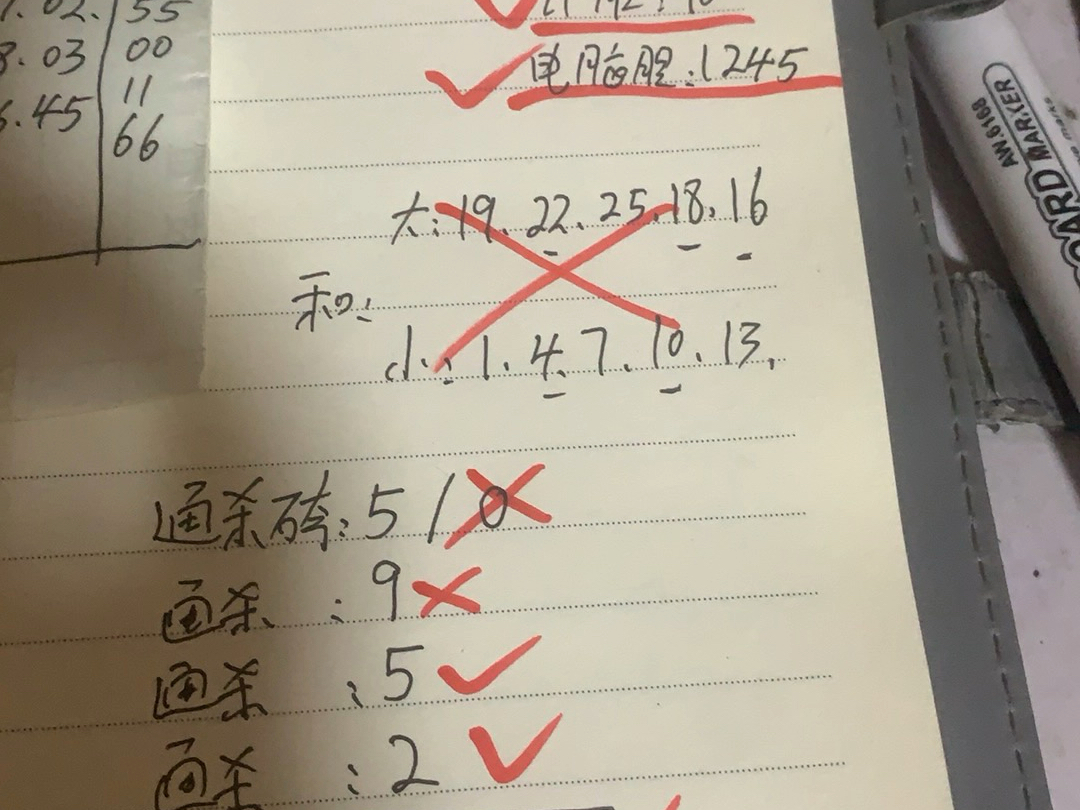 02. 55
03 00
11
.45 66
电脑胆:1245
大:19.22.25.18.16
和:
小:1.4.7.10.13.
通杀码:5/0
通杀:9
通杀:5
通杀:2
AW.6168
MARKER